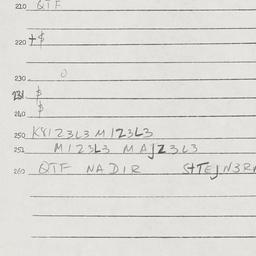 210 QTF
220 +$
230 0
231 $
240 $
250 K8123L3 M123L3
251 M123L3 MAJZ3L3
260 QTF NADIR